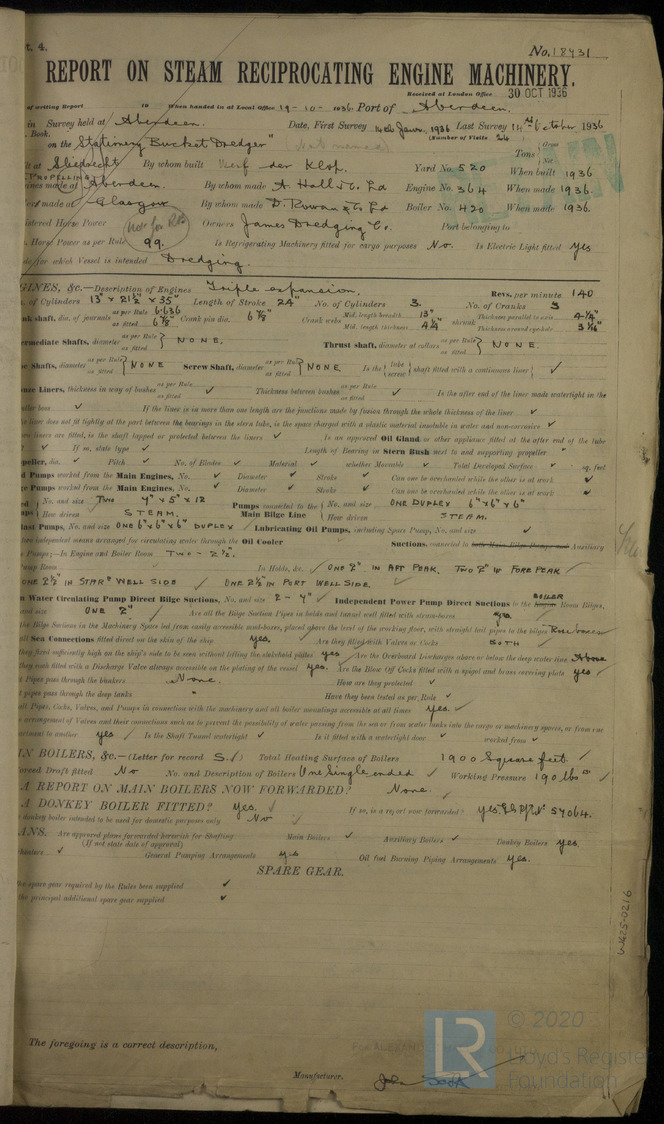 t. 4.
No. 18431
REPORT ON STEAM RECIPROCATING ENGINE MACHINERY.
Received at London Office 30 OCT 1936
of writing Report 19 When handed in at Local Office 19-10-1936 Port of Aberdeen.
in Survey held at Aberdeen. Date, First Survey Janr. 1936 Last Survey 14th October 1936
Book. (Number of Visits
on the Stationary Bucket Dredger" (Not named) Tons Gross Net
lt at Sliedrecht By whom built Werf de Klop. Yard No. 520 When built 1936
(PROPELLING)
ines made at Aberdeen. By whom made A. Hall & Co. Ld Engine No. 364 When made 1936.
made at Glasgow By whom made D. Rowan & Co. Ld Boiler No. 420 When made 1936.
istered Horse Power Owners James Dredging Co. Port belonging to
Not for RB
Horse Power as per Rule 99. Is Refrigerating Machinery fitted for cargo purposes No. Is Electric Light fitted Yes
de for which Vessel is intended Dredging.
GINES, &c.—Description of Engines Triple expansion. Revs. per minute 140
of Cylinders 13" x 21½" x 35" Length of Stroke 24" No. of Cylinders 3. No. of Cranks 3
nk shaft, dia. of journals as per Rule 6.636 as fitted 6⅞" Crank pin dia. 6⅞" Crank webs Mid. length breadth 13" Mid. length thickness 4¼" shrunk Thickness parallel to axis 4-¼" Thickness around eye-hole 3 1/16"
ermediate Shafts, diameter as per Rule as fitted NONE. Thrust shaft, diameter at collars as per Rule as fitted NONE.
e Shafts, diameter as per Rule as fitted NONE Screw Shaft, diameter as per Rule as fitted NONE Is the tube screw shaft fitted with a continuous liner ✓
onze Liners, thickness in way of bushes as per Rule as fitted ✓ Thickness between bushes as per Rule as fitted ✓ Is the after end of the liner made watertight in the
eller boss ✓ If the liner is in more than one length are the junctions made by fusion through the whole thickness of the liner ✓
e liner does not fit tightly at the part between the bearings in the stern tube, is the space charged with a plastic material insoluble in water and non-corrosive ✓
liners are fitted, is the shaft lapped or protected between the liners ✓ Is an approved Oil Gland or other appliance fitted at the after end of the tube
✓ If so, state type ✓ Length of Bearing in Stern Bush next to and supporting propeller "
peller, dia. ✓ Pitch ✓ No. of Blades ✓ Material ✓ whether Moveable ✓ Total Developed Surface ✓ sq. feet
d Pumps worked from the Main Engines, No. ✓ Diameter ✓ Stroke ✓ Can one be overhauled while the other is at work ✓
ge Pumps worked from the Main Engines, No. ✓ Diameter ✓ Stroke ✓ Can one be overhauled while the other is at work ✓
ed No. and size TWO 7" x 5" x 12 Pumps connected to the Main Bilge Line No. and size ONE DUPLEX 6" x 6" x 6"
mps How driven STEAM. How driven STEAM.
last Pumps, No. and size ONE 6" x 6" x 6" DUPLEX Lubricating Oil Pumps, including Spare Pump, No. and size ✓
independent means arranged for circulating water through the Oil Cooler Suctions, connected to both Main Bilge Pumps and Auxiliary
Pumps;—In Engine and Boiler Room TWO - 2½".
ump Room In Holds, &c. ✓ ONE 2" IN AFT PEAK. TWO 2" IN FORE PEAK
ONE 2½" IN STARD WELL SIDE ONE 2½" IN PORT WELL SIDE.
n Water Circulating Pump Direct Bilge Suctions, No. and size 2 - 4" Independent Power Pump Direct Suctions to the Engine BOILER Room Bilges,
and size ONE 2" Are all the Bilge Suction Pipes in holds and tunnel well fitted with strum-boxes yes.
the Bilge Suctions in the Machinery Space led from easily accessible mud-boxes, placed above the level of the working floor, with straight tail pipes to the bilges Rose boxes
all Sea Connections fitted direct on the skin of the ship yes. Are they fitted with Valves or Cocks BOTH
they fixed sufficiently high on the ship's side to be seen without lifting the stokehold plates yes Are the Overboard Discharges above or below the deep water line Above
they each fitted with a Discharge Valve always accessible on the plating of the vessel yes. Are the Blow Off Cocks fitted with a spigot and brass covering plate yes
Pipes pass through the bunkers None. How are they protected ✓
pipes pass through the deep tanks " Have they been tested as per Rule ✓
all Pipes, Cocks, Valves, and Pumps in connection with the machinery and all boiler mountings accessible at all times yes.
arrangement of Valves and their connections such as to prevent the possibility of water passing from the sea or from water tanks into the cargo or machinery spaces, or from one
artment to another yes Is the Shaft Tunnel watertight ✓ Is it fitted with a watertight door ✓ worked from ✓
IN BOILERS, &c.—(Letter for record S.) Total Heating Surface of Boilers 1900 Square feet.
orced Draft fitted No No. and Description of Boilers One Single ended Working Pressure 190 lbs
A REPORT ON MAIN BOILERS NOW FORWARDED? None.
A DONKEY BOILER FITTED? Yes. If so, is a report now forwarded?
donkey boiler intended to be used for domestic purposes only No
ANS. Are approved plans forwarded herewith for Shafting Main Boilers ✓ Auxiliary Boilers ✓ Donkey Boilers yes.
(If not state date of approval)
heaters ✓ General Pumping Arrangements yes Oil fuel Burning Piping Arrangements yes.
SPARE GEAR.
the spare gear required by the Rules been supplied ✓
the principal additional spare gear supplied ✓
W625-0216
The foregoing is a correct description,
Manufacturer.
© 2020
LR
Lloyd's Register
Foundation